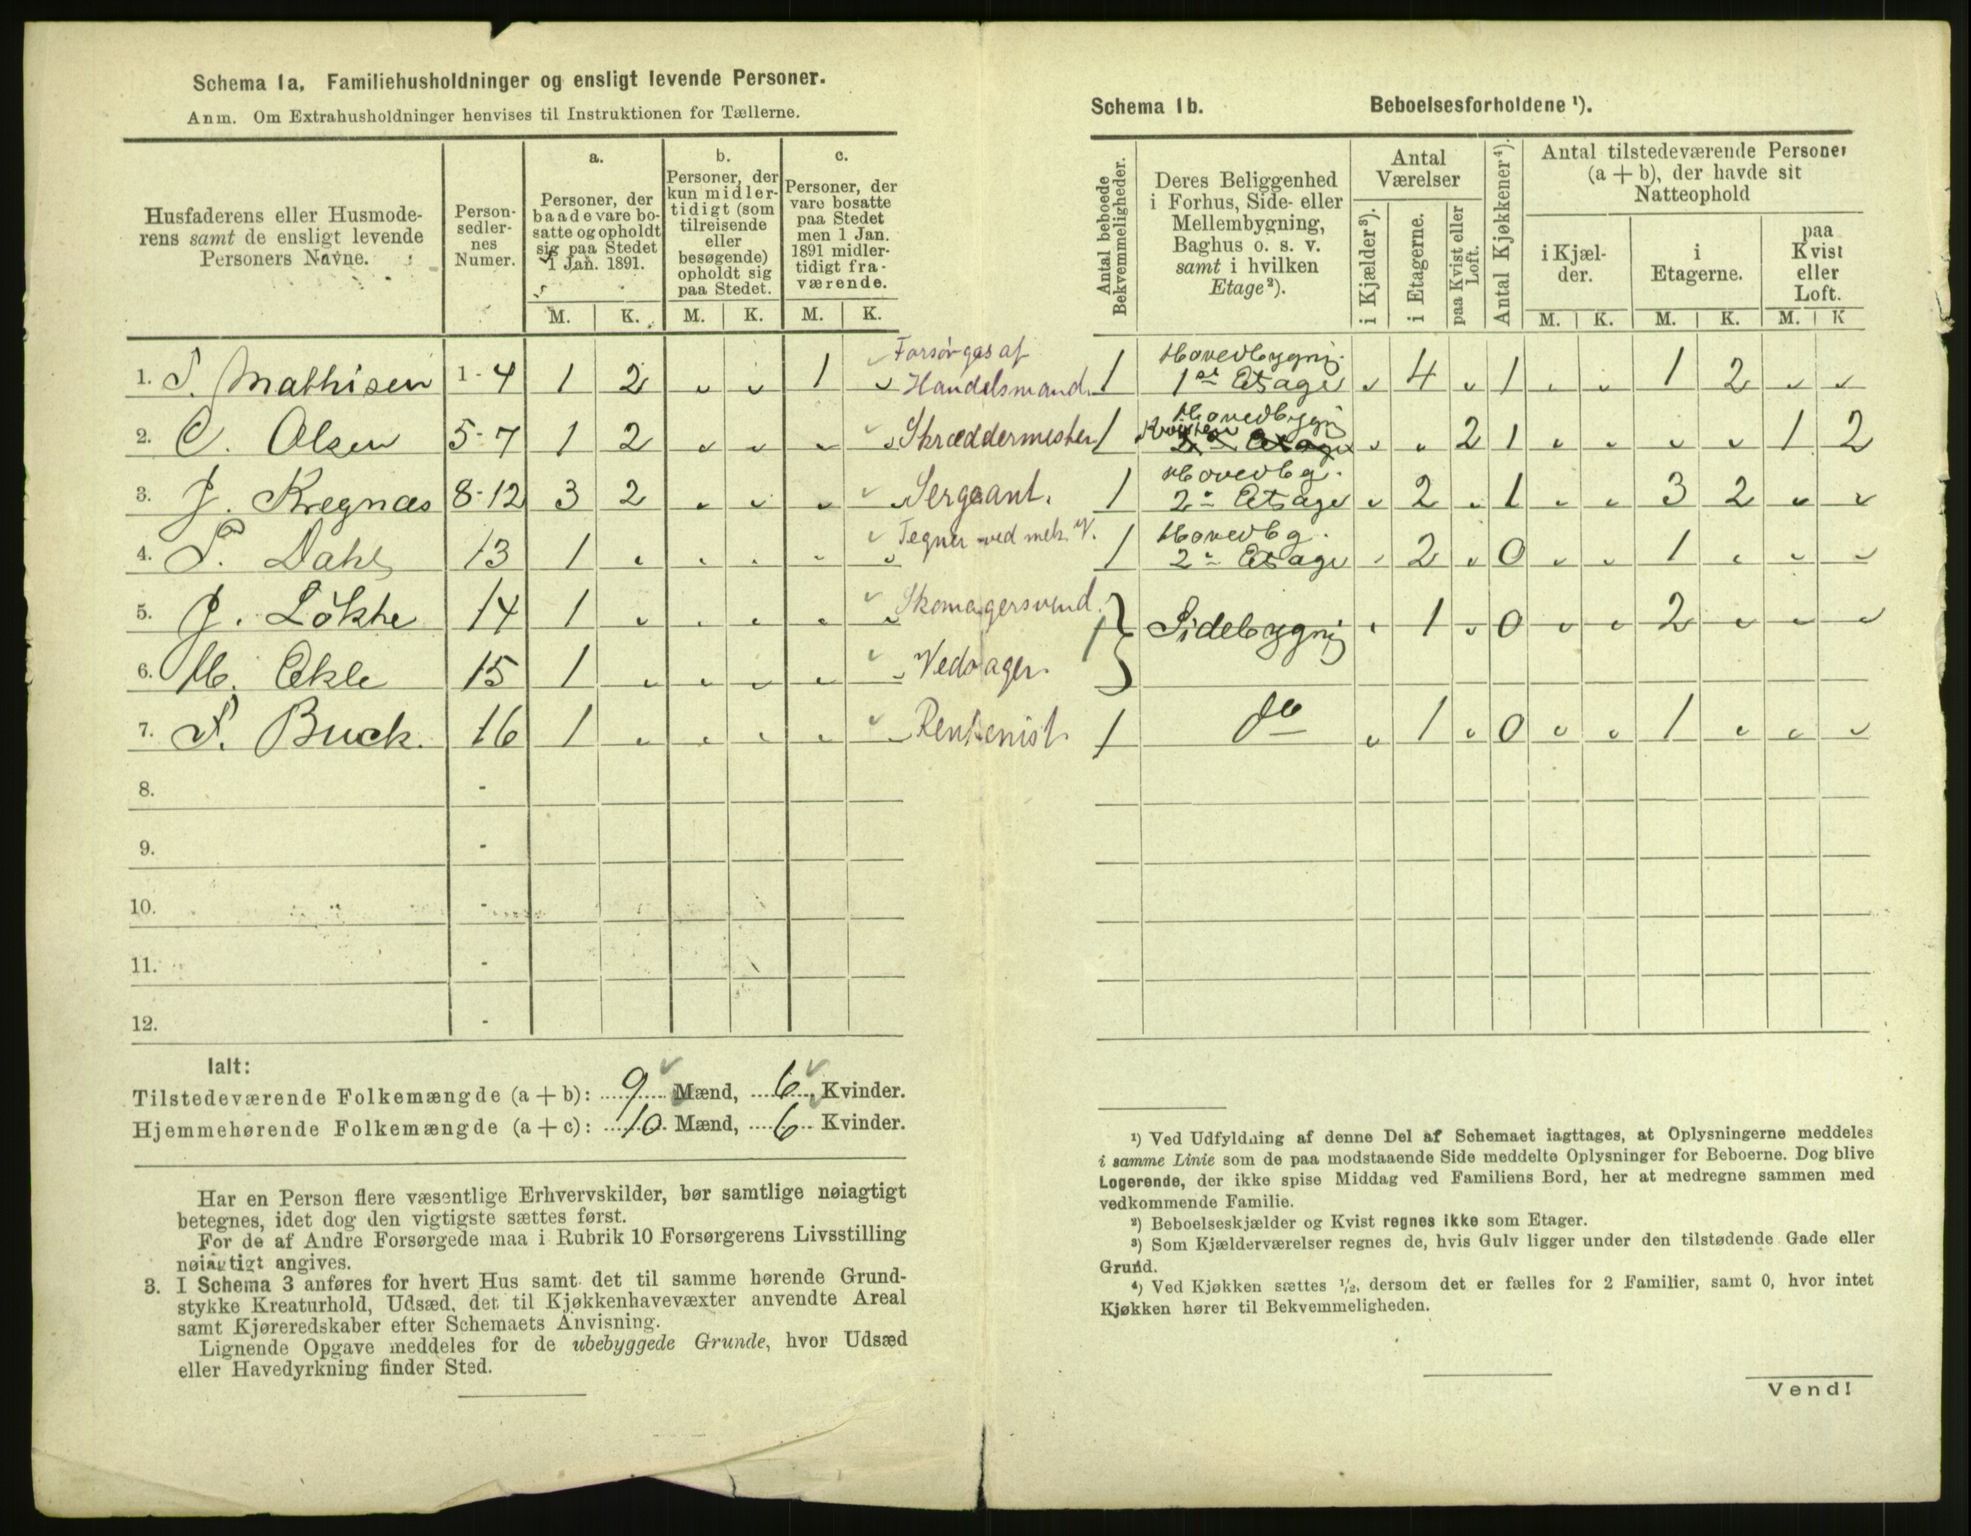 Schema 1a. Familiehusholdninger og ensligt levende Personer.
Anm. Om Extrahusholdninger henvises til Instruktionen for Tællerne.
Husfaderens eller Husmode-
rens samt de ensligt levende
Personers Navne.
Person-
sedler-
nes
Numer.
a.
Personer, der
baade vare bo-
satte og opholdt
sig paa Stedet
1 Jan. 1891.
b.
Personer, der
kun midler-
tidigt (som
tilreisende
eller
besøgende)
opholdt sig
paa Stedet.
c.
Personer, der
vare bosatte
paa Stedet
men 1 Jan.
1891 midler-
tidigt fra-
værende.
M. K. M. K. M. K.
1. P. Mathisen 1-4 1 2 „ „ 1 „ Forsørges af
Handelsmand.
2. C. Olsen 5-7 1 2 „ „ „ „ Skræddermester
3. J. Kregnæs 8-12 3 2 „ „ „ „ Sergeant.
4. P. Dahl 13 1 „ „ „ „ „ Tegner ved mek. V.
5. J. Lökke 14 1 „ „ „ „ „ Skomagersvend.
6. M. Ekle 15 1 „ „ „ „ „ Vedsager.
7. P. Buck. 16 1 „ „ „ „ „ Rentenist
8. -
9. -
10. -
11. -
12. -
Ialt:
Tilstedeværende Folkemængde (a + b): 9 Mænd, 6 Kvinder.
Hjemmehørende Folkemængde (a + c): 10 Mænd, 6 Kvinder.
Har en Person flere væsentlige Erhvervskilder, bør samtlige nøiagtigt
betegnes, idet dog den vigtigste sættes først.
For de af Andre Forsørgede maa i Rubrik 10 Forsørgerens Livsstilling
nøiagtigt angives.
3. I Schema 3 anføres for hvert Hus samt det til samme hørende Grund-
stykke Kreaturhold, Udsæd, det til Kjøkkenhavevæxter anvendte Areal
samt Kjøreredskaber efter Schemaets Anvisning.
Lignende Opgave meddeles for de ubebyggede Grunde, hvor Udsæd
eller Havedyrkning finder Sted.
Schema 1b. Beboelsesforholdene ¹).
Antal beboede
Bekvemmeligheder.
Deres Beliggenhed
i Forhus, Side- eller
Mellembygning,
Baghus o. s. v.
samt i hvilken
Etage²).
Antal
Værelser
i Kjælder³).
i Etagerne.
paa Kvist eller
Loft.
Antal Kjøkkener⁴).
Antal tilstedeværende Personer
(a + b), der havde sit
Natteophold
i Kjæl-
der.
i
Etagerne.
paa
Kvist
eller
Loft.
M. K. M. K. M. K
1 Hovedbygnig.
1ste Etage „ 4 „ 1 „ „ 1 2 „ „
1 Hovedbygnig
Kvisten 2n Etage „ „ 2 1 „ „ „ „ 1 2
1 Hovedbg.
2n Etage „ 2 „ 1 „ „ 3 2 „ „
1 Hovedbg.
2n Etage „ 2 „ 0 „ „ 1 „ „ „
1 } Sidebygnig „ 1 „ 0 „ „ 2 „ „ „
1 do „ 1 „ 0 „ „ 1 „ „ „
¹) Ved Udfyldning af denne Del af Schemaet iagttages, at Oplysningerne meddeles
i samme Linie som de paa modstaaende Side meddelte Oplysninger for Beboerne. Dog blive
Logerende, der ikke spise Middag ved Familiens Bord, her at medregne sammen med
vedkommende Familie.
²) Beboelseskjælder og Kvist regnes ikke som Etager.
³) Som Kjælderværelser regnes de, hvis Gulv ligger under den tilstødende Gade eller
Grund.
⁴) Ved Kjøkken sættes ½, dersom det er fælles for 2 Familier, samt 0, hvor intet
Kjøkken hører til Bekvemmeligheden.
Vend!